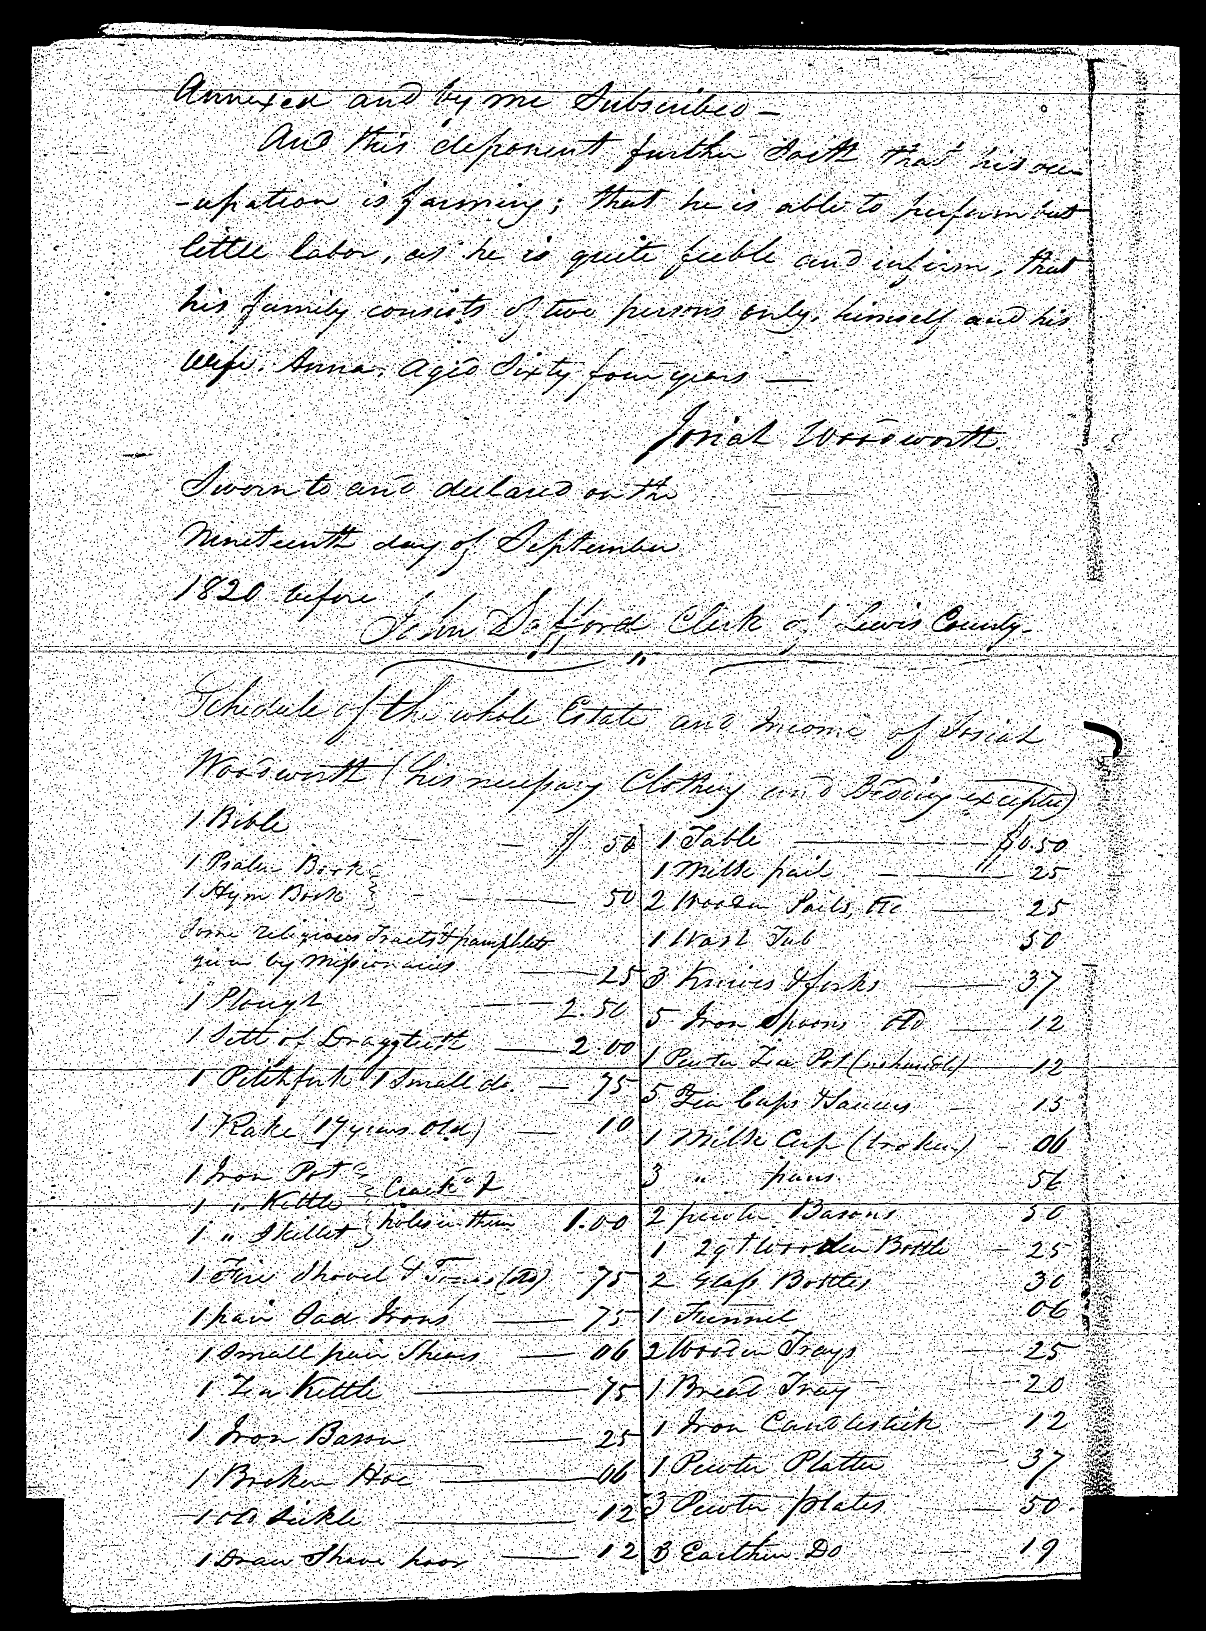 Annexed and by me Subscribed —
And this deponent further Saith that his occu-
-upation is farming; that he is able to perform but
little labor, as he is quite feeble and infirm, that
his family consists of two persons only, himself and his
Wife, Anna, aged Sixty four years —
Josiah Woodworth.
Sworn to and declared on the
Nineteenth day of September
1820 before
John Safford Clerk of Lewis County.
Schedule of the whole Estate and Income of Josiah
Woodsworth (his necessary Clothing and Bedding excepted)
1 Bible — $ 50
1 Psalm Book
1 Hym Book — 50
Some religious Tracts & pamphlets
given by Missionaries — 25
1 Plough — 2.50
1 Sett of Dragg teeth — 2.00
1 Pitchfork 1 Small do. — 75
1 Rake (17 years old) — 10
1 Iron Pot
1 " Kettle } Crack'd &
1 " Skillet } holes in them 1.00
1 Fire Shovel & Tongs (old) 75
1 pair Sad Irons — 75
1 Small pair Shears — 06
1 Tea Kettle — 75
1 Iron Bason — 25
1 Broken Hoe — 06
1 old Sickle — 12
1 Draw Shave poor — 12
1 Table — $0.50
1 Milk pail — 25
2 Wooden Pails, — 25
1 Wash Tub 50
3 Knives & forks — 37
5 Iron Spoons old — 12
1 Pewter Tea Pot (no handle) 12
5 Tea Cups & Saucers — 15
1 Milk Cup (broken) — 06
3 " pans 56
2 pewter Basons 50
1 2 qt Wooden Bottle — 25
2 Glass Bottles 30
1 Funnel 06
2 Wooden Trays — 25
1 Bread Tray — 20
1 Iron Candlestick — 12
1 Pewter Platter 37
3 Pewter plates — 50.
3 Earthen Do — 19